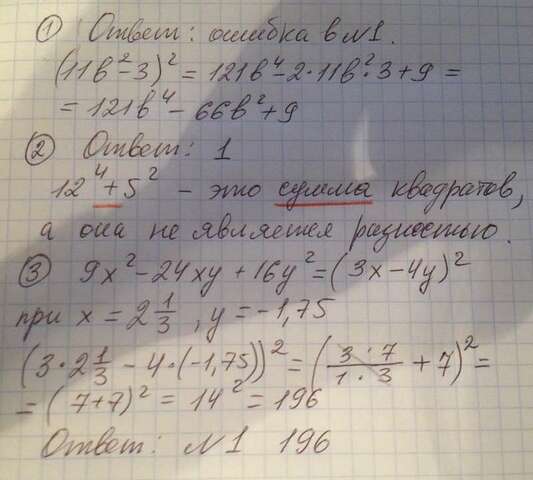 ① Ответ: ошибка в №1.
(11b² - 3)² = 121b⁴ - 2·11b²·3 + 9 =
= 121b⁴ - 66b² + 9
② Ответ: 1
12⁴ + 5² - это сумма квадратов,
а она не является разностью.
③ 9x² - 24xy + 16y² = (3x - 4y)²
при x = 2 1/3, y = -1,75
(3·2 1/3 - 4·(-1,75))² = (3·7/1·3 + 7)² =
= (7+7)² = 14² = 196
Ответ: №1 196